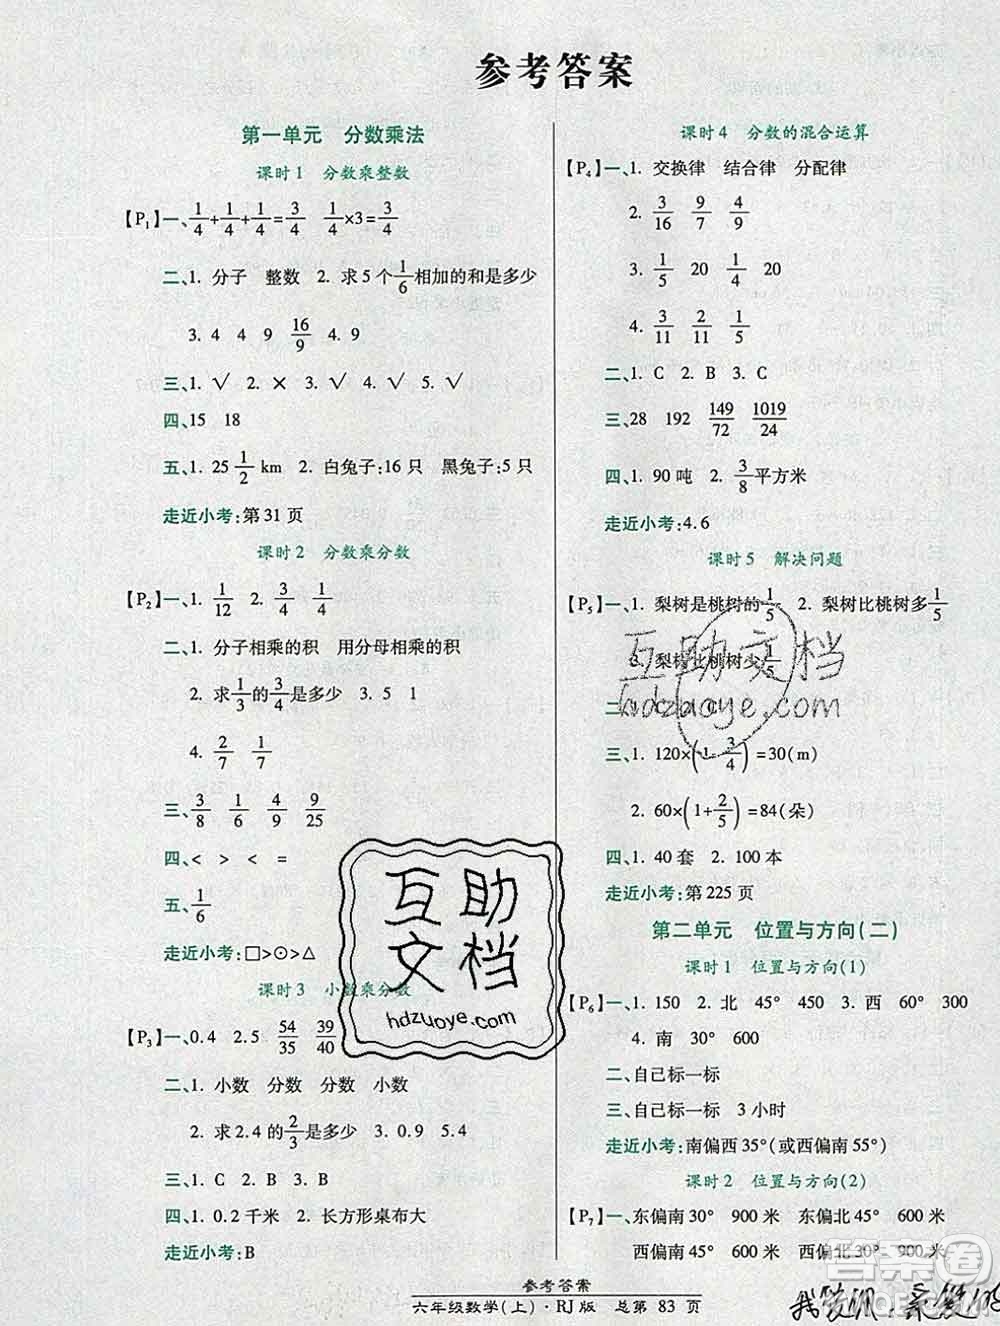 参考答案
第一单元 分数乘法
课时1 分数乘整数
【P1】一、1/4+1/4+1/4=3/4 1/4×3=3/4
二、1. 分子 整数 2. 求5个1/6相加的和是多少
3. 4 4 9 16/9 4. 9
三、1. √ 2. × 3. √ 4. √ 5. √
四、15 18
五、1. 25 1/2 km 2. 白兔子:16只 黑兔子:5只
走近小考:第31页
课时2 分数乘分数
【P2】一、1. 1/12 2. 3/4 1/4
二、1. 分子相乘的积 用分母相乘的积
2. 求1/3的3/4是多少 3. 5 1
4. 2/7 1/7
三、3/8 1/6 4/9 9/25
四、< > < =
五、1/6
走近小考:□>⊙>△
课时3 小数乘分数
【P3】一、0.4 2.5 54/35 39/40
二、1. 小数 分数 分数 小数
2. 求2.4的2/3是多少 3. 0.9 5.4
三、1. C 2. B 3. B
四、1. 0.2千米 2. 长方形桌布大
走近小考:B
课时4 分数的混合运算
【P4】一、1. 交换律 结合律 分配律
2. 3/16 9/7 4/9
3. 1/5 20 1/4 20
4. 3/11 2/11 1/5
二、1. C 2. B 3. C
三、28 192 149/72 1019/24
四、1. 90吨 2. 3/8平方米
走近小考:4.6
课时5 解决问题
【P5】一、1. 梨树是桃树的1/5 2. 梨树比桃树多1/5
3. 梨树比桃树少1/5
二、1. C 2. A 3. C
三、1. 120×(1-3/4)=30(m)
2. 60×(1+2/5)=84(朵)
四、1. 40套 2. 100本
走近小考:第225页
第二单元 位置与方向(二)
课时1 位置与方向(1)
【P6】一、1. 150 2. 北 45° 450 3. 西 60° 300
4. 南 30° 600
二、自己标一标
三、自己标一标 3小时
走近小考:南偏西35°(或西偏南55°)
课时2 位置与方向(2)
【P7】一、东偏南30° 900米 东偏北45° 600米
西偏南45° 600米 西偏北30° 900米
互助文档
hdzuoye.com
互助文档
hdzuoye.com
答案圈
参考答案
六年级数学(上)·RJ版 总第 83 页